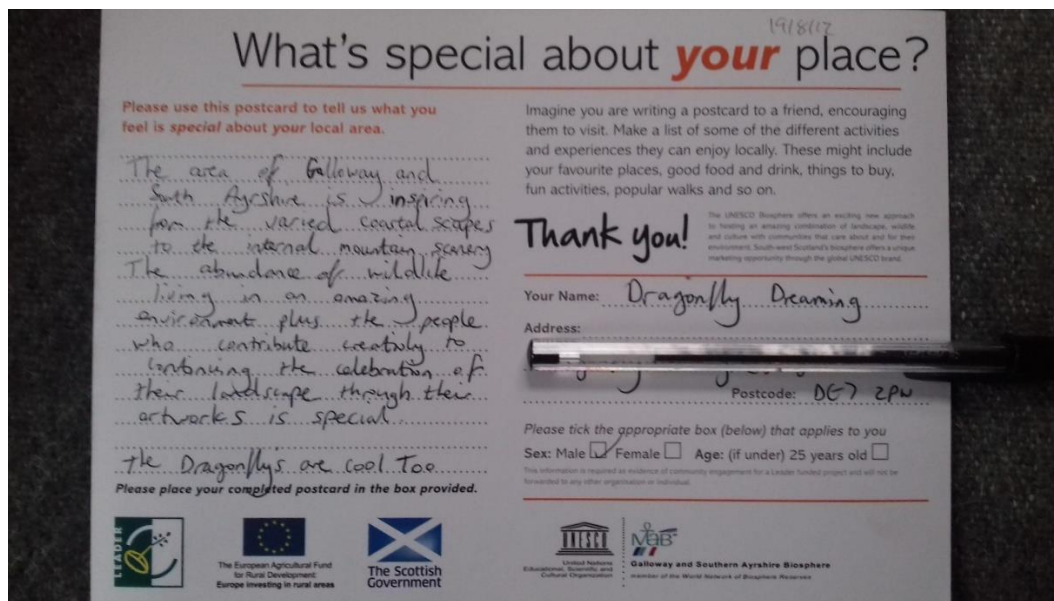 19/8/12
What's special about your place?
Please use this postcard to tell us what you
feel is special about your local area.
The area of Galloway and
South Ayrshire is inspiring
from the varied coastal scapes
to the internal mountain scenery
The abundance of wildlife
living in an amazing
environment plus the people
who contribute creativly to
continuing the celebration of
their landscape through their
artworks is special.
The Dragonfly's are cool Too
Please place your completed postcard in the box provided.
LEADER
The European Agricultural Fund
for Rural Development:
Europe investing in rural areas
The Scottish
Government
Imagine you are writing a postcard to a friend, encouraging
them to visit. Make a list of some of the different activities
and experiences they can enjoy locally. These might include
your favourite places, good food and drink, things to buy,
fun activities, popular walks and so on.
Thank you!
The UNESCO Biosphere offers an exciting new approach
to hosting an amazing combination of landscape, wildlife
and culture with communities that care about and for their
environment. South-west Scotland's biosphere offers a unique
marketing opportunity through the global UNESCO brand.
Your Name: Dragonfly Dreaming
Address:
Postcode: DG7 2PW
Please tick the appropriate box (below) that applies to you
Sex: Male Female Age: (if under) 25 years old
This information is required as evidence of community engagement for a Leader funded project and will not be
forwarded to any other organisation or individual.
UNESCO
United Nations
Educational, Scientific and
Cultural Organization
MaB
Galloway and Southern Ayrshire Biosphere
member of the World Network of Biosphere Reserves